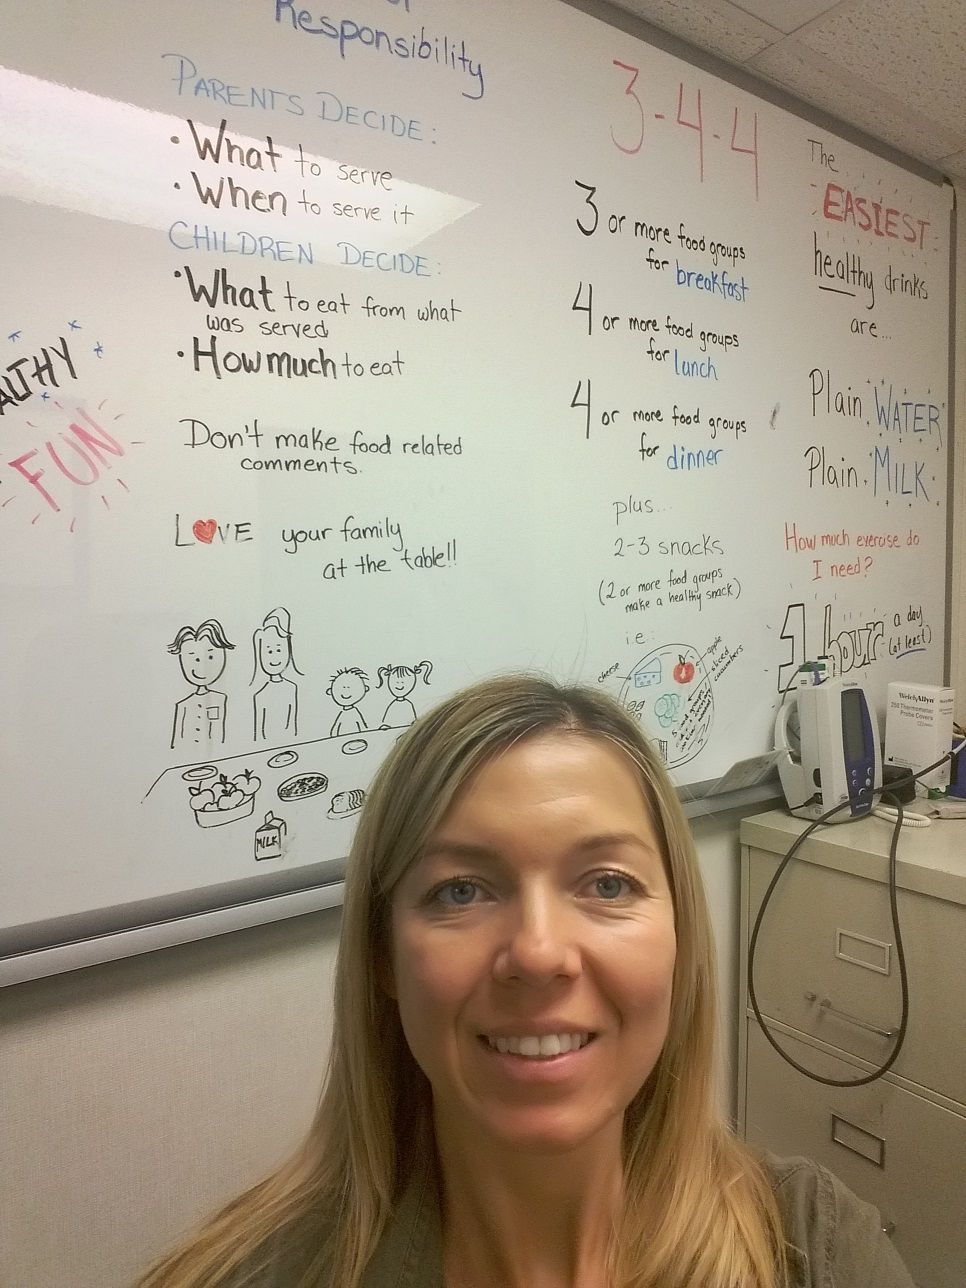 Responsibility
PARENTS DECIDE:
• What to serve
• When to serve it
CHILDREN DECIDE:
• What to eat from what
was served
• How much to eat
Don't make food related
comments.
LOVE your family
at the table!!
MILK
ALTHY
FUN
3-4-4
3 or more food groups
for breakfast
4 or more food groups
for lunch
4 or more food groups
for dinner
plus...
2-3 snacks
(2 or more food groups
make a healthy snack)
i.e.
cheese
apple
sliced
cucumbers
The
EASIEST
healthy drinks
are...
Plain WATER
Plain MILK
How much exercise do
I need?
1 hour a day
(at least)
WelchAllyn
Thermometer
Probe Covers